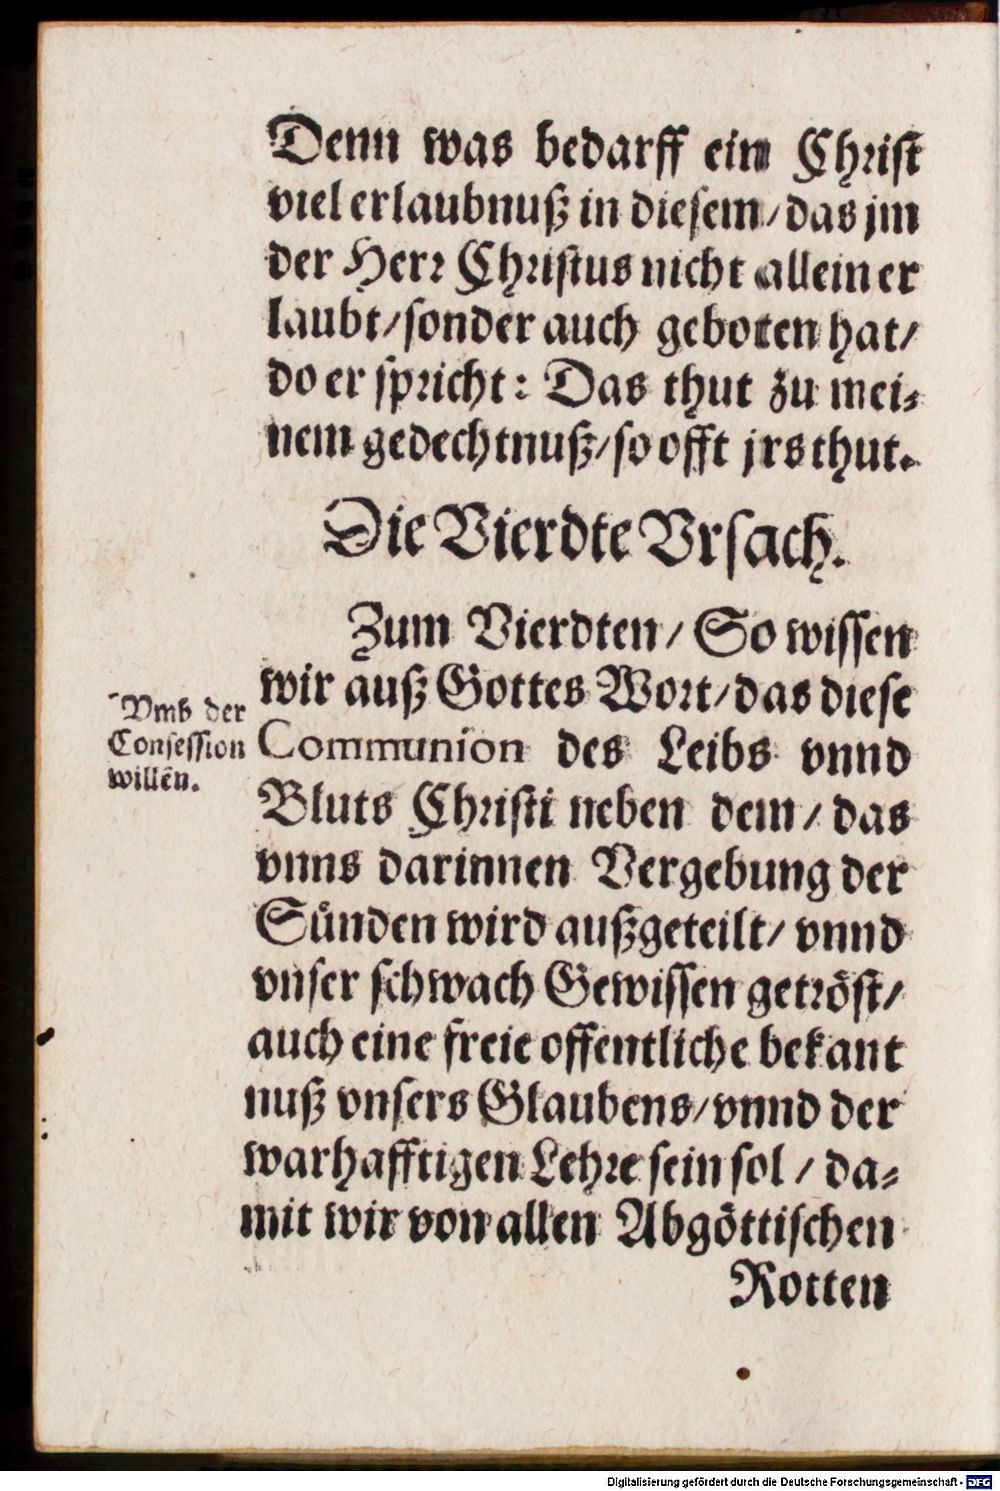 Denn was bedarff ein Christ
viel erlaubnuß in diesem/ das jm
der Herr Christus nicht allein er
laubt/ sonder auch geboten hat/
do er spricht: Das thut zu mei-
nem gedechtnuß/ so offt jrs thut.
Die Vierdte Vrsach.
Zum Vierdten/ So wissen
wir auß Gottes Wort/ das diese
Vmb der
Confession
willẽ.
Communion des Leibs vnnd
Bluts Christi neben dem/ das
vnns darinnen Vergebung der
Sünden wird außgeteilt/ vnnd
vnser schwach Gewissen getröst/
auch eine freie offentliche bekant
nuß vnsers Glaubens/ vnnd der
warhafftigen Lehre sein sol/ da-
mit wir von allen Abgöttischen
Rotten
Digitalisierung gefördert durch die Deutsche Forschungsgemeinschaft - DFG